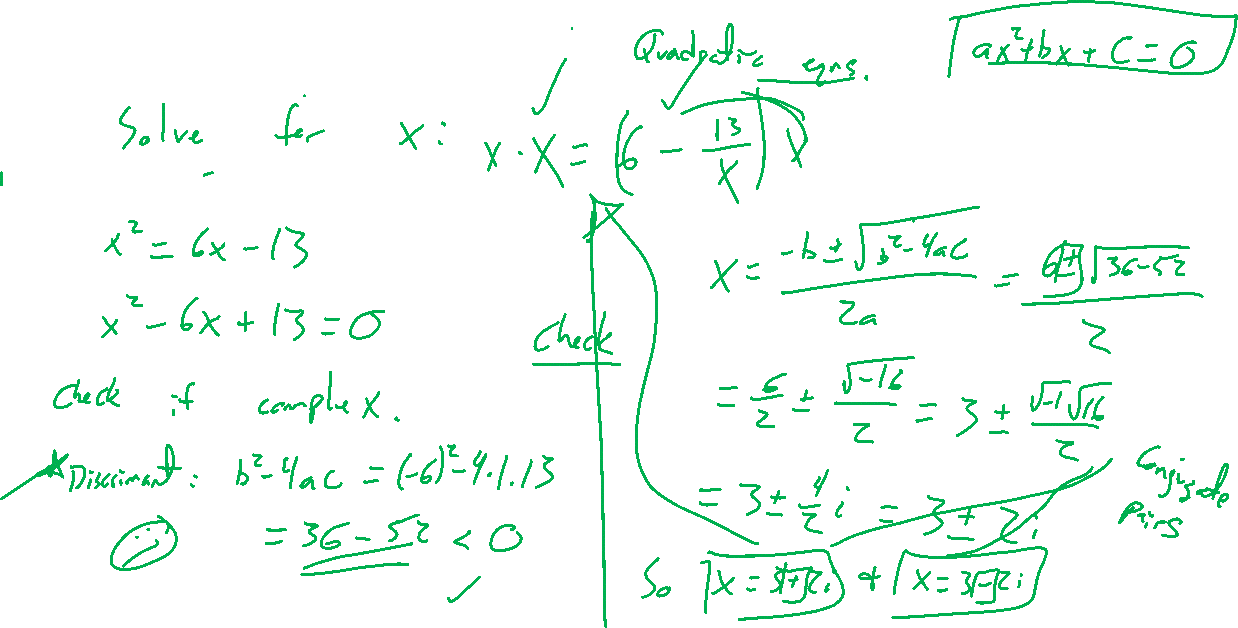 Quadratic eqns.
ax²+bx+C=0
Solve for x: x·x=(6-13/x)x
x²=6x-13
x²-6x+13=0
Check if complex.
Discrimant: b²-4ac=(-6)²-4·1·13
=36-52<0
Check
x=(-b±√(b²-4ac))/2a=(6±√(36-52))/2
=6/2±√-16/2=3±√-1√16/2
=3±4/2i=3±2i
Conjugate Pairs
So x=3+2i & x=3-2i